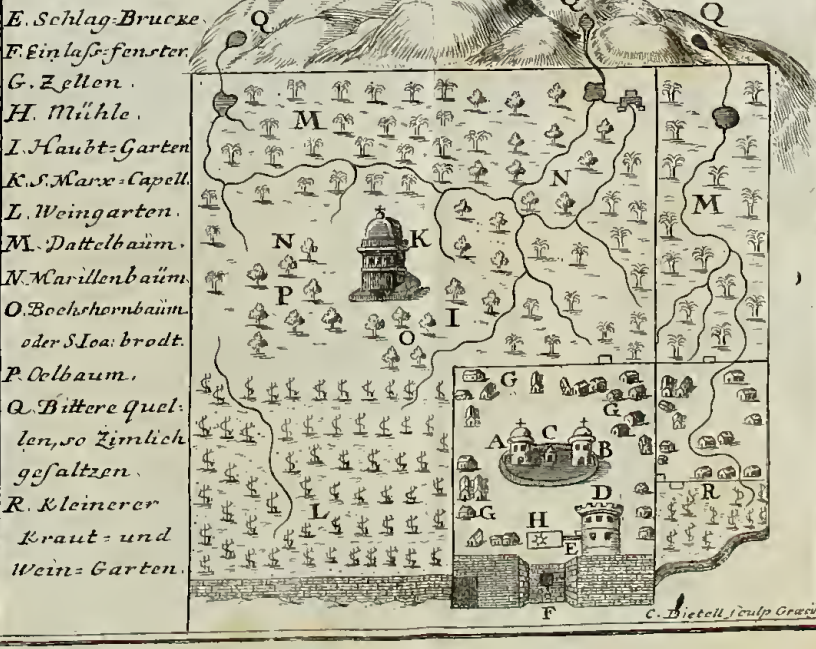 E. Schlag=Brucke.
F. Einlaß=fenster.
G. Zellen.
H. Mühle.
I. Haubt=Garten
K. S. Marx=Capell.
L. Weingarten.
M. Dattelbaüm.
N. Marillenbaüm.
O. Bockshornbaüm.
oder S. Ioa: brodt.
P. Oelbaum.
Q. Bittere Quel=
len, so Zimlich
gesaltzen.
R. Kleinerer
Kraut= und
Wein=Garten.
Q
Q
Q
M
N
M
N
K
P
I
O
G
G
A
C
B
D
R
G
L
H
E
F
C. Dietell sculp Græcij